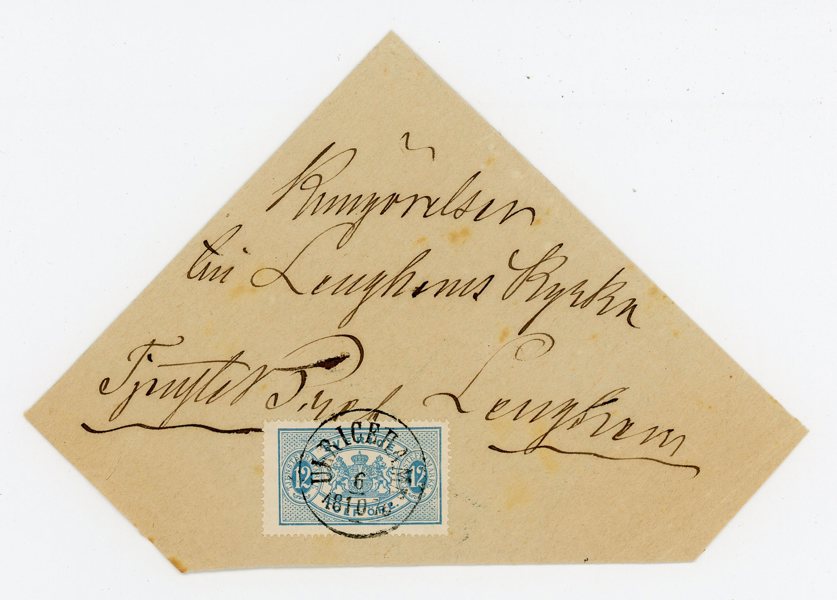 Kungörelsen
till Lenghems Kyrka
Tjenste Prof Lenghem
12 12
ULRICEHAMN
6
1810